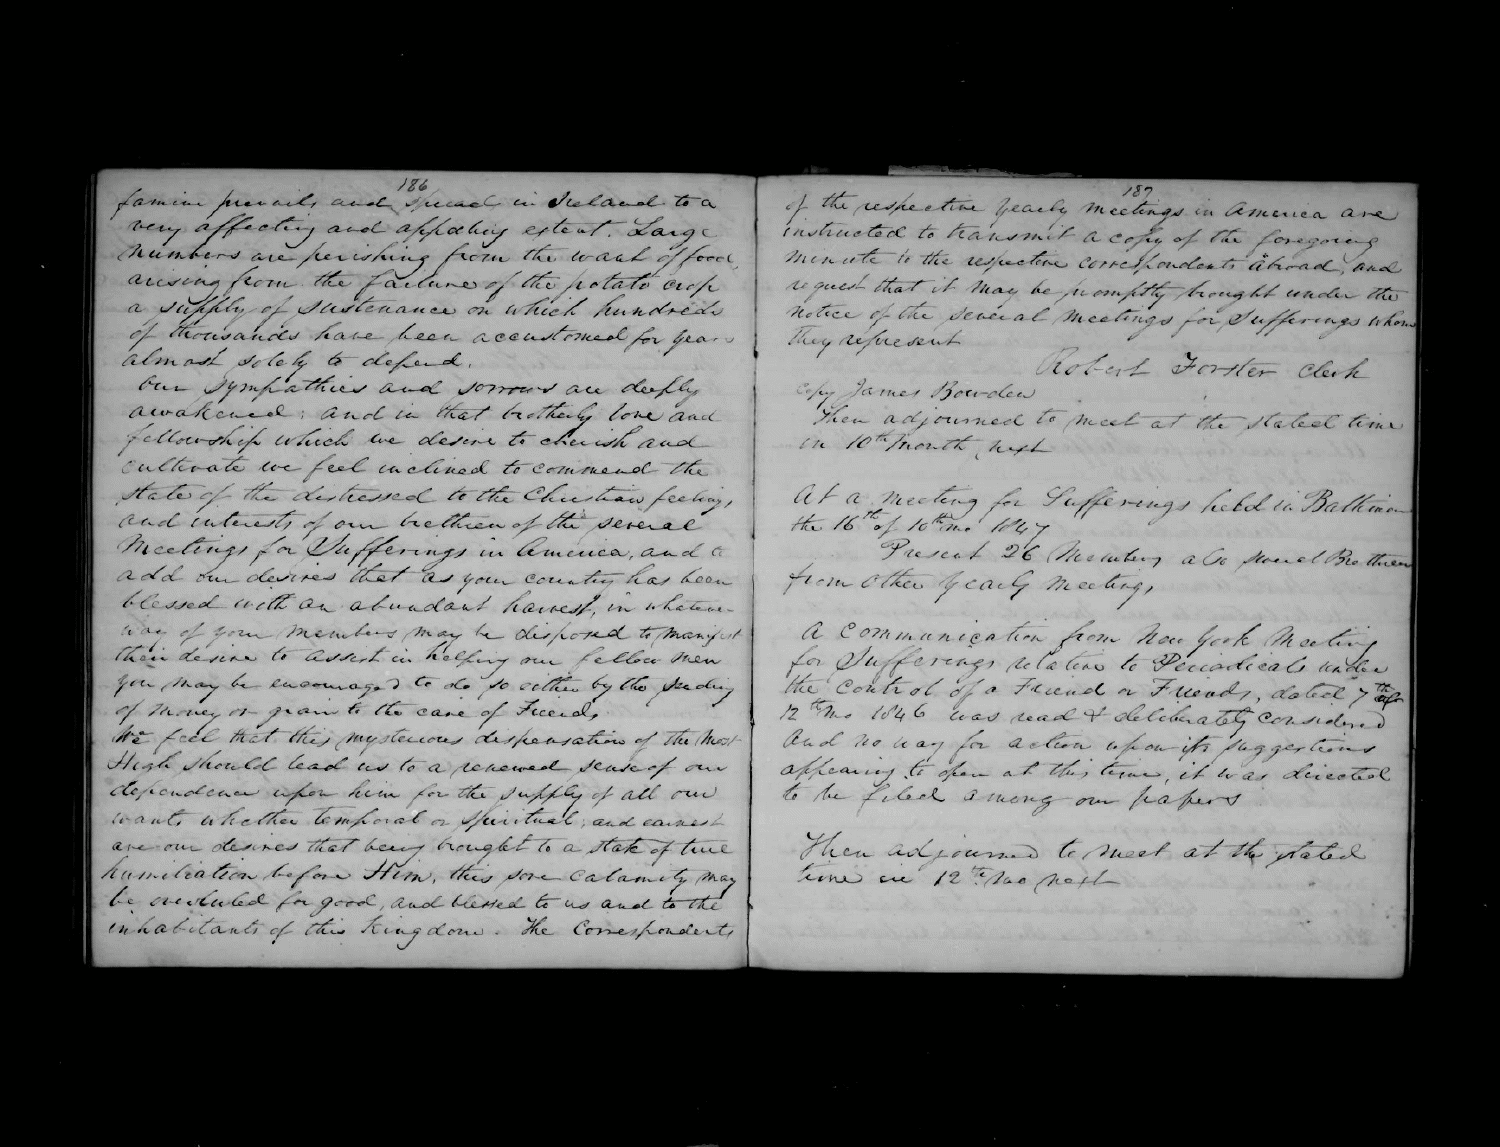 186
famine prevails and spread in Ireland to a
very affecting and appalling extent. Large
numbers are perishing from the want of food,
arising from the failure of the potato crop
a supply of sustenance on which hundreds
of thousands have been accustomed for years
almost solely to depend.
Our sympathies and sorrows are deeply
awakened; and in that brotherly love and
fellowship which we desire to cherish and
cultivate we feel inclined to commend the
state of the distressed to the Christian feelings
and interests of our brethren of the several
Meetings for Sufferings in America, and to
add our desires that as your country has been
blessed with an abundant harvest, in whatever
way of your members may be disposed to manifest
their desire to assist in helping our fellow men
you may be encouraged to do so either by the sending
of money or grain to the care of Friends.
We feel that this mysterious dispensation of the Most
High should lead us to a renewed sense of our
dependence upon him for the supply of all our
wants whether temporal or spiritual; and earnest
are our desires that being brought to a state of true
humiliation before Him, this sore calamity may
be overruled for good, and blessed to us and to the
inhabitants of this Kingdom. The Correspondents
187
of the respective Yearly Meetings in America are
instructed to transmit a copy of the foregoing
minute to the respective correspondents abroad, and
request that it may be promptly brought under the
notice of the several Meetings for Sufferings whom
they represent
Robert Forster Clerk
copy James Bowden
Then adjourned to meet at the stated time
in 10th month next
At a meeting for Sufferings held in Baltimore
the 16th of 10th mo 1847
Present 26 Members also several Brethren
from other Yearly Meetings,
A communication from New York Meeting
for Sufferings relative to Periodicals under
the control of a Friend or Friends, dated 7th of
12th mo 1846 was read & deliberately considered
And no way for action upon its suggestions
appearing to open at this time, it was directed
to be filed among our papers
Then adjourned to meet at the stated
time in 12th mo next